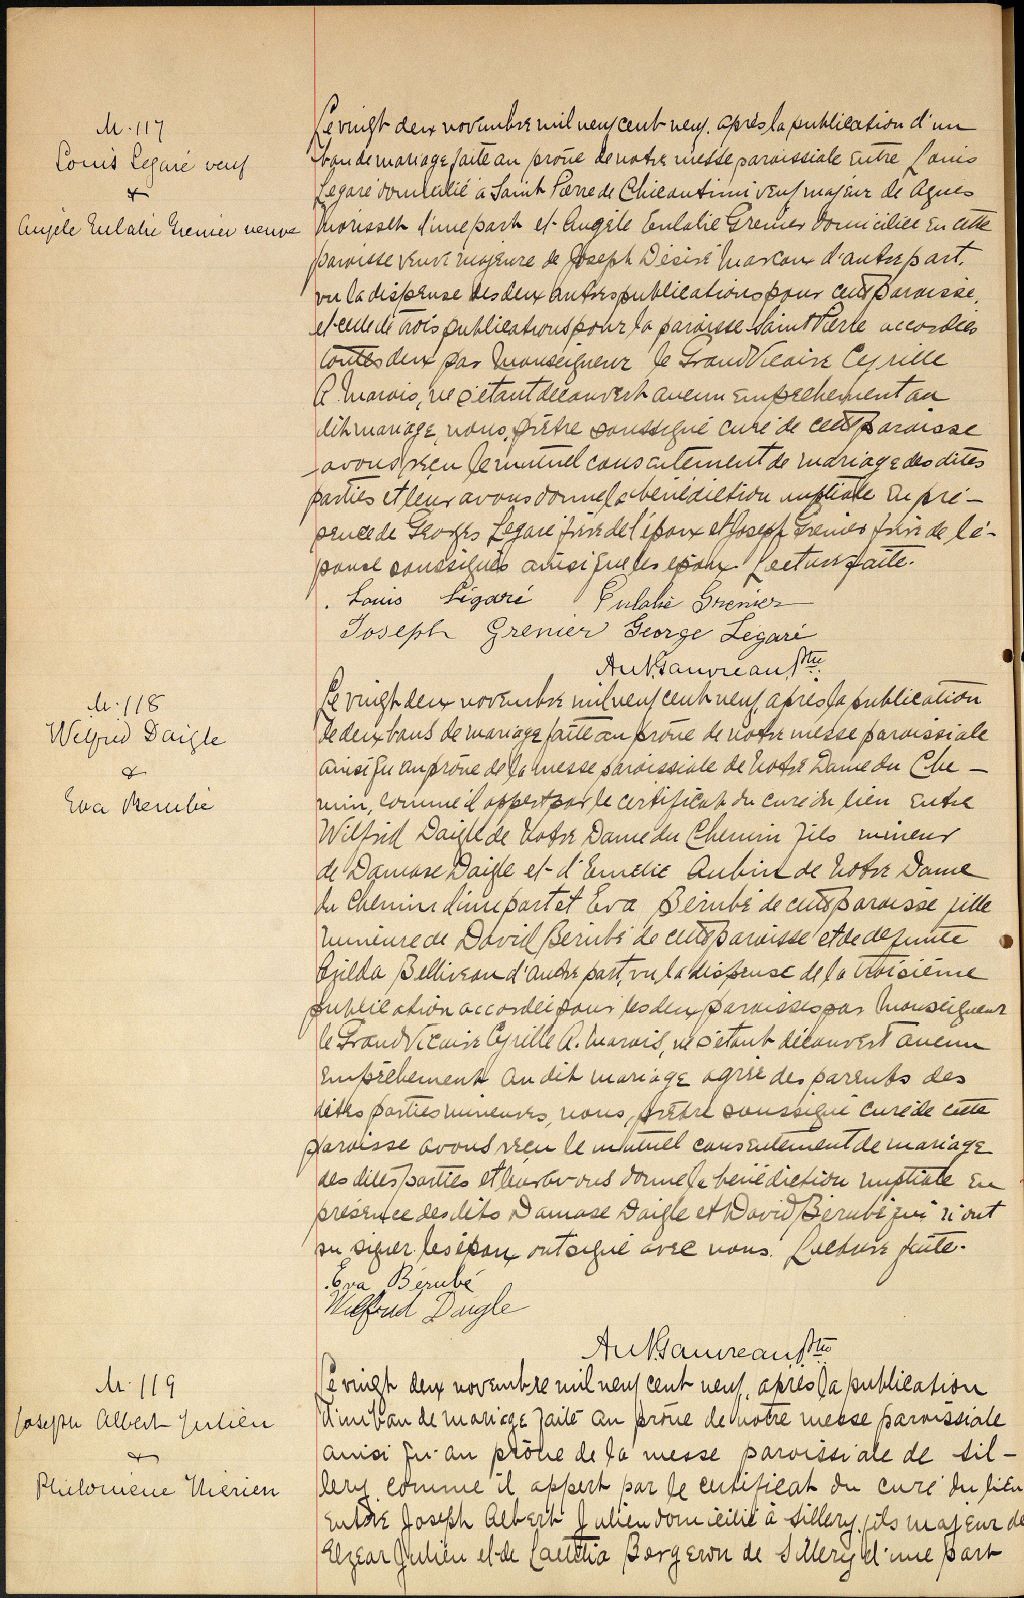 M. 117
Louis Legaré veuf
&
Angèle Eulalie Grenier veuve
Le vingt deux novembre mil neuf cent neuf, après la publication d'un
ban de mariage faite au prône de notre messe paroissiale entre Louis
Legaré domicilié à Saint Pierre de Chicoutimi veuf majeur de Agnes
Morisset d'une part et Angèle Eulalie Grenier domiciliée en cette
paroisse veuve majeure de Joseph Désiré Marcoux d'autre part,
vu la dispense des deux autres publications pour cette paroisse,
et celle de trois publications pour la paroisse Saint Pierre accordées
toutes deux par Monseigneur le Grand Vicaire Cyrille
A. Marois, ne s'étant découvert aucun empêchement au
dit mariage, nous, prêtre soussigné curé de cette paroisse
avons reçu le mutuel consentement de mariage des dites
parties et leur avons donné la bénédiction nuptiale en pré-
sence de Georges Legaré frère de l'époux et Joseph Grenier frère de l'é-
pouse soussignés ainsi que les époux. Lecture faite.
Louis Légaré Eulalie Grenier
Joseph Grenier George Légaré
Au. N. Gauvreau Ptre
M. 118
Wilfrid Daigle
&
Eva Berubé
Le vingt deux novembre mil neuf cent neuf, après la publication
de deux bans de mariage faite au prône de notre messe paroissiale
ainsi qu'au prône de la messe paroissiale de Notre Dame du Che-
min, comme il appert par le certificat du curé du lieu entre
Wilfrid Daigle de Notre Dame du Chemin fils mineur
de Damase Daigle et d'Emélie Aubin de Notre Dame
du Chemin d'une part et Eva Bérubé de cette paroisse fille
mineure de David Bérubé de cette paroisse et de defunte
Exilda Belliveau d'autre part, vu la dispense de la troisième
publication accordée pour les deux paroisses par Monseigneur
le Grand Vicaire Cyrille A. Marois, ne s'étant découvert aucun
empêchement au dit mariage agréé des parents des
dites parties mineures, nous, prêtre soussigné curé de cette
paroisse avons reçu le mutuel consentement de mariage
des dites parties et leur avons donné la bénédiction nuptiale en
présence des dits Damase Daigle et David Bérubé qui n'ont
su signer les époux ont signé avec nous. Lecture faite.
Eva Bérubé
Wilfrid Daigle
Au. N. Gauvreau Ptre
M. 119
Joseph Albert Julien
&
Philomène
Le vingt deux novembre mil neuf cent neuf, après la publication
d'un ban de mariage faite au prône de notre messe paroissiale
ainsi qu'au prône de la messe paroissiale de Sil-
lery, comme il appert par le certificat du curé du lieu
entre Joseph Albert Julien domicilié à Sillery, fils majeur de
Elzear Julien et de Laetitia Bergeron de Sillery d'une part